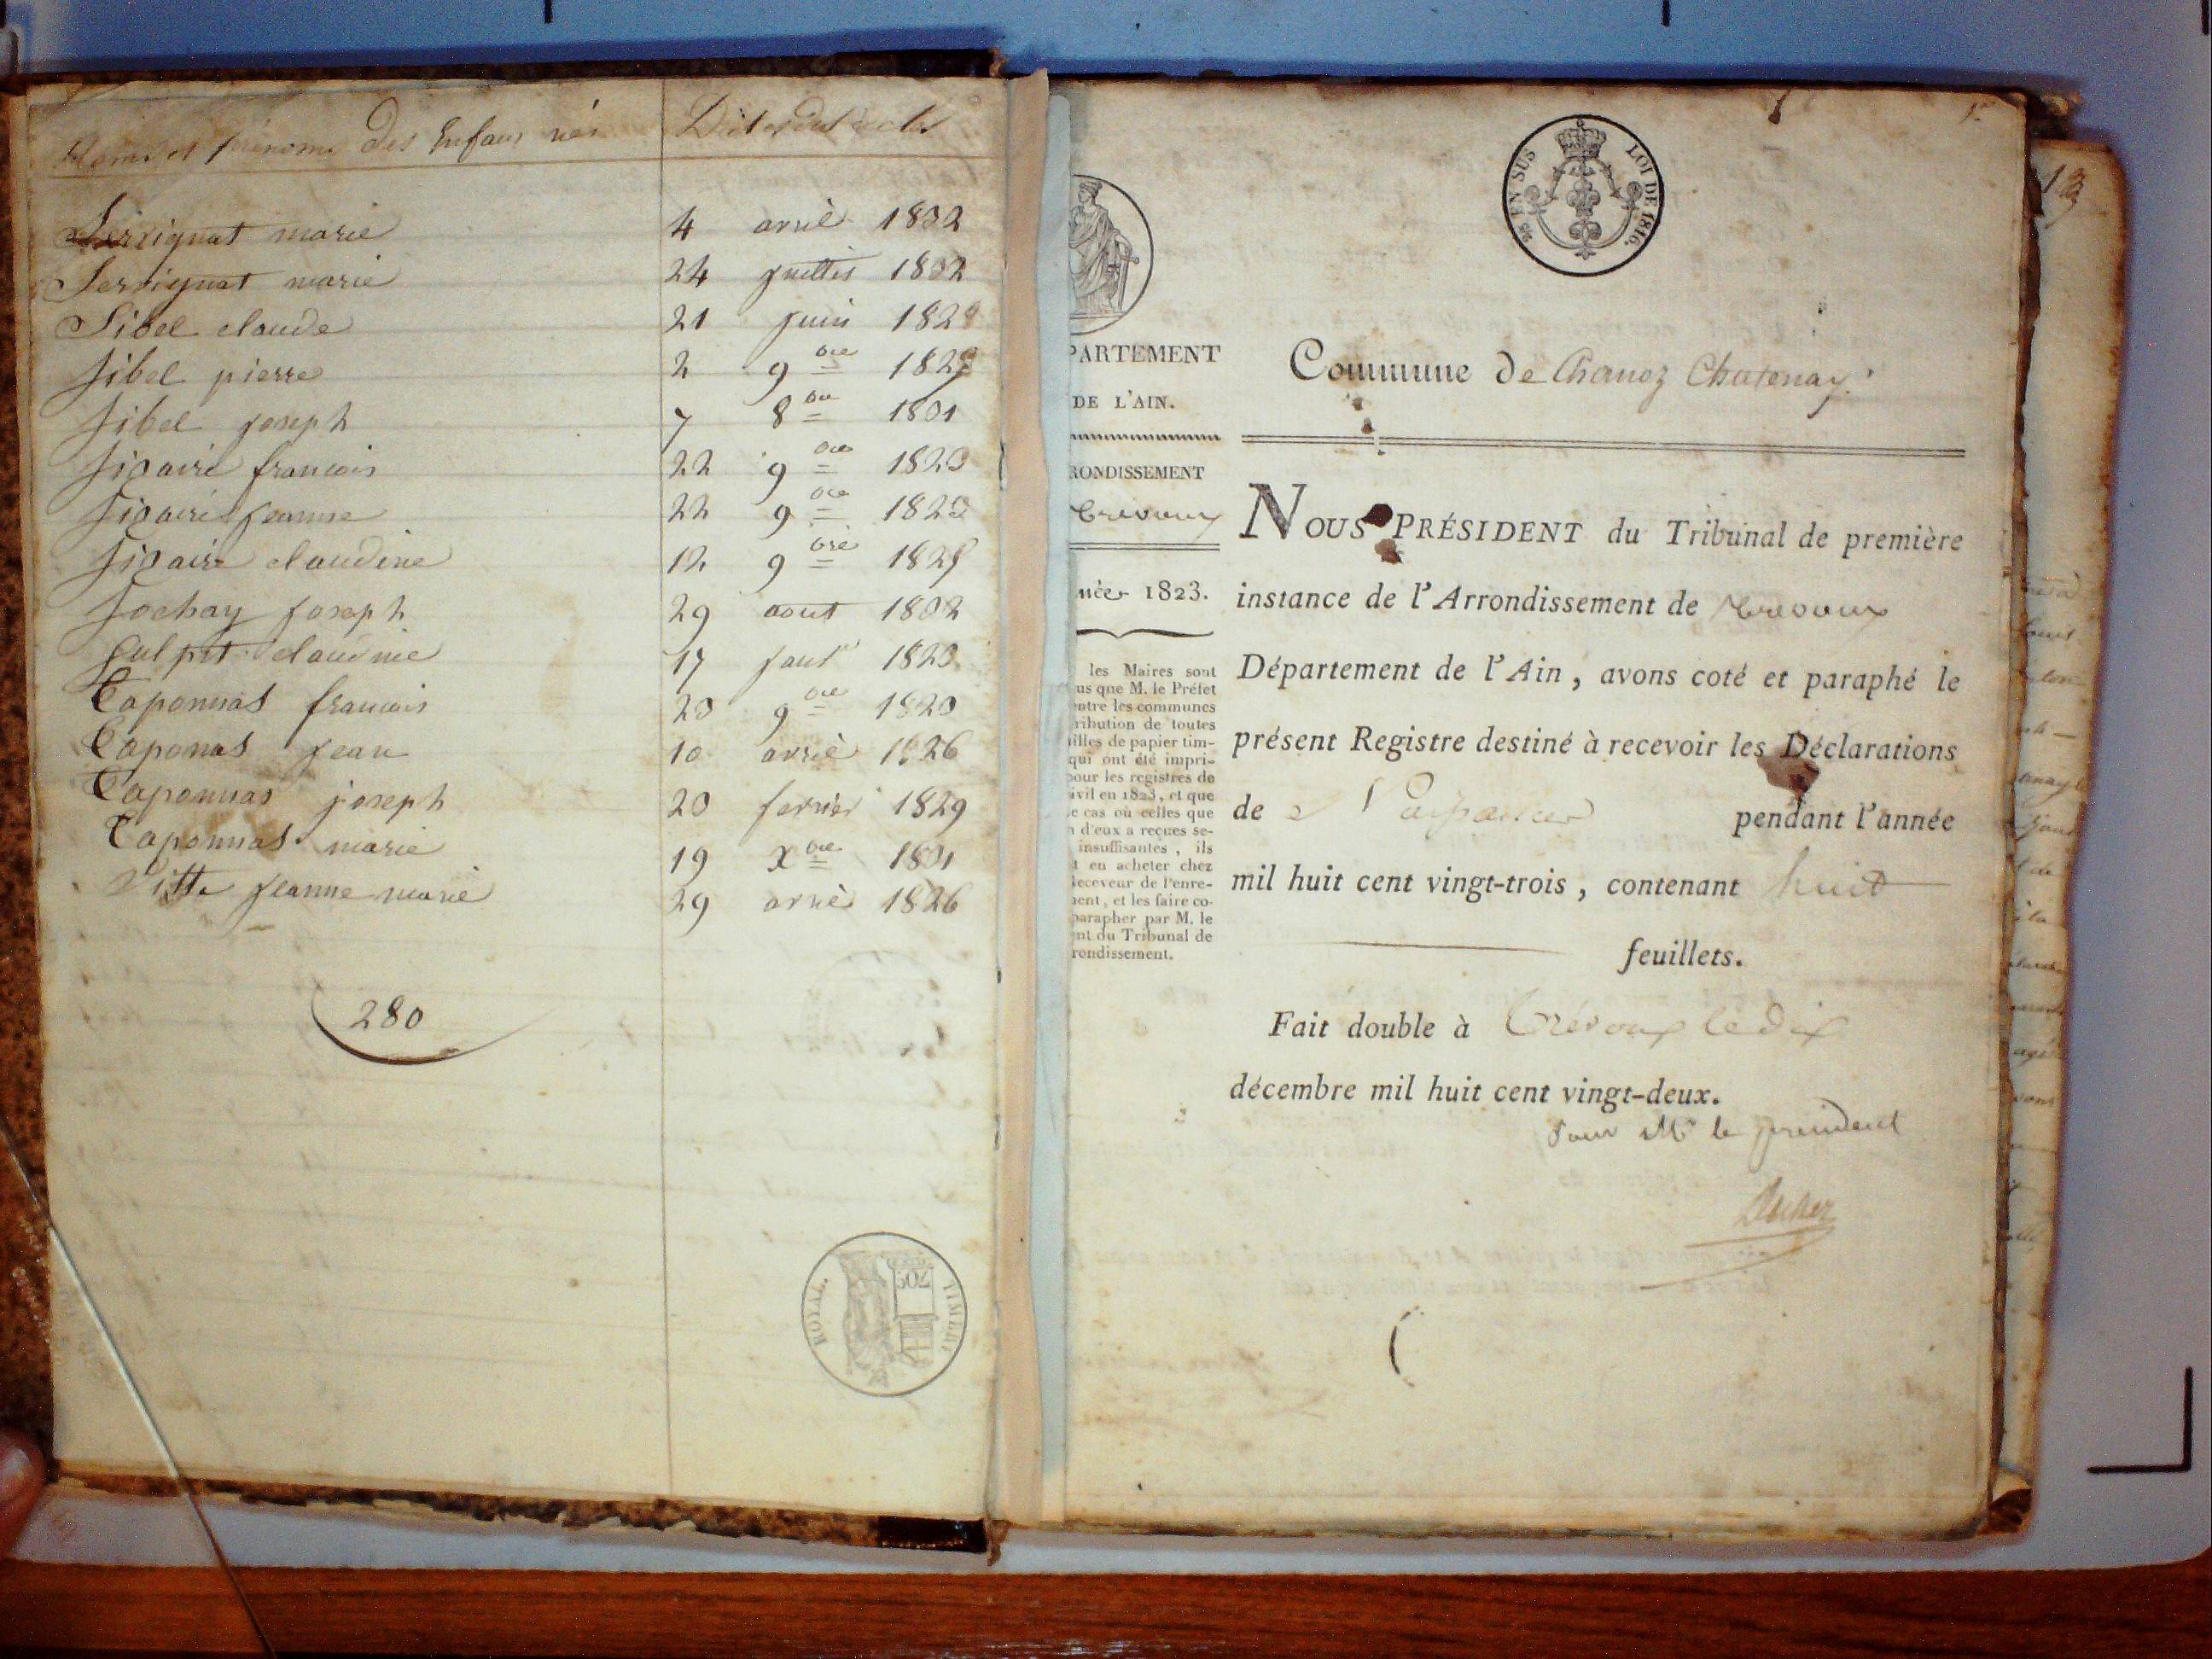 Noms et prénoms des Enfans nés Dates des actes
Serrignat marie 4 avril 1832
Serrignat marie 24 juillet 1832
Sibel claude 21 juin 1828
Sibel pierre 2 9bre 182
Sibel joseph 7 8bre 1831
francois 22 9bre 1823
jeanne 22 9bre 1823
claudine 12 9bre 182
Sochay joseph 29 aout 1832
Sulpit claudine 17 janvr 1823
Taponnas francois 23 9bre 1823
Taponas jean 10 avril 1826
Taponnas joseph 20 fevrier 1829
Taponnas marie 19 Xbre 1831
Vitte jeanne marie 29 avril 1826
280
TIMBRE ROYAL.
1er
25 EN SUS LOI DE 1816.
PARTEMENT
DE L'AIN.
RONDISSEMENT
Trévoux
née 1823.
les Maires sont
us que M. le Préfet
entre les communes
ribution de toutes
illes de papier tim-
qui ont été impri-
pour les registres de
ivil en 1823, et que
e cas où celles que
n d'eux a reçues se-
insuffisantes, ils
t en acheter chez
Receveur de l'enre-
ment, et les faire co-
parapher par M. le
nt du Tribunal de
rondissement.
Commune de Chanoz Chatenay
NOUS PRÉSIDENT du Tribunal de première
instance de l'Arrondissement de Trevoux
Département de l'Ain, avons coté et paraphé le
présent Registre destiné à recevoir les Déclarations
de Naissances pendant l'année
mil huit cent vingt-trois, contenant huit
feuillets.
Fait double à Trévoux le dix
décembre mil huit cent vingt-deux.
Pour Mr le président